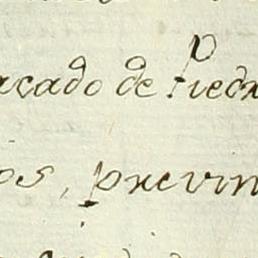 acado de Piedr
os, previn